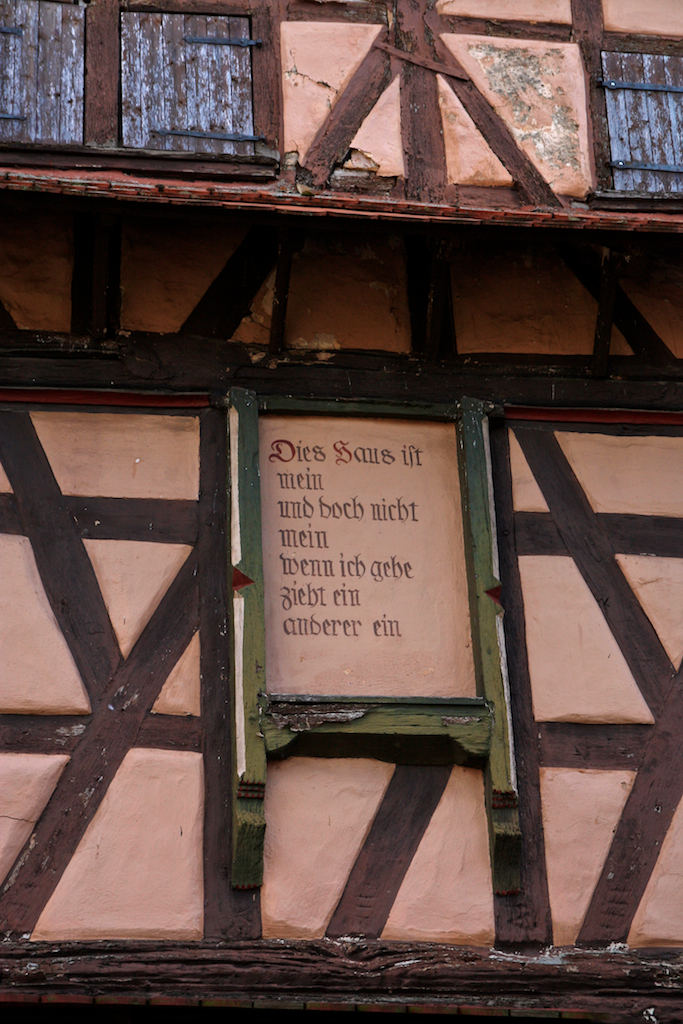 Dies Haus ist
mein
und doch nicht
mein
wenn ich gehe
zieht ein
anderer ein